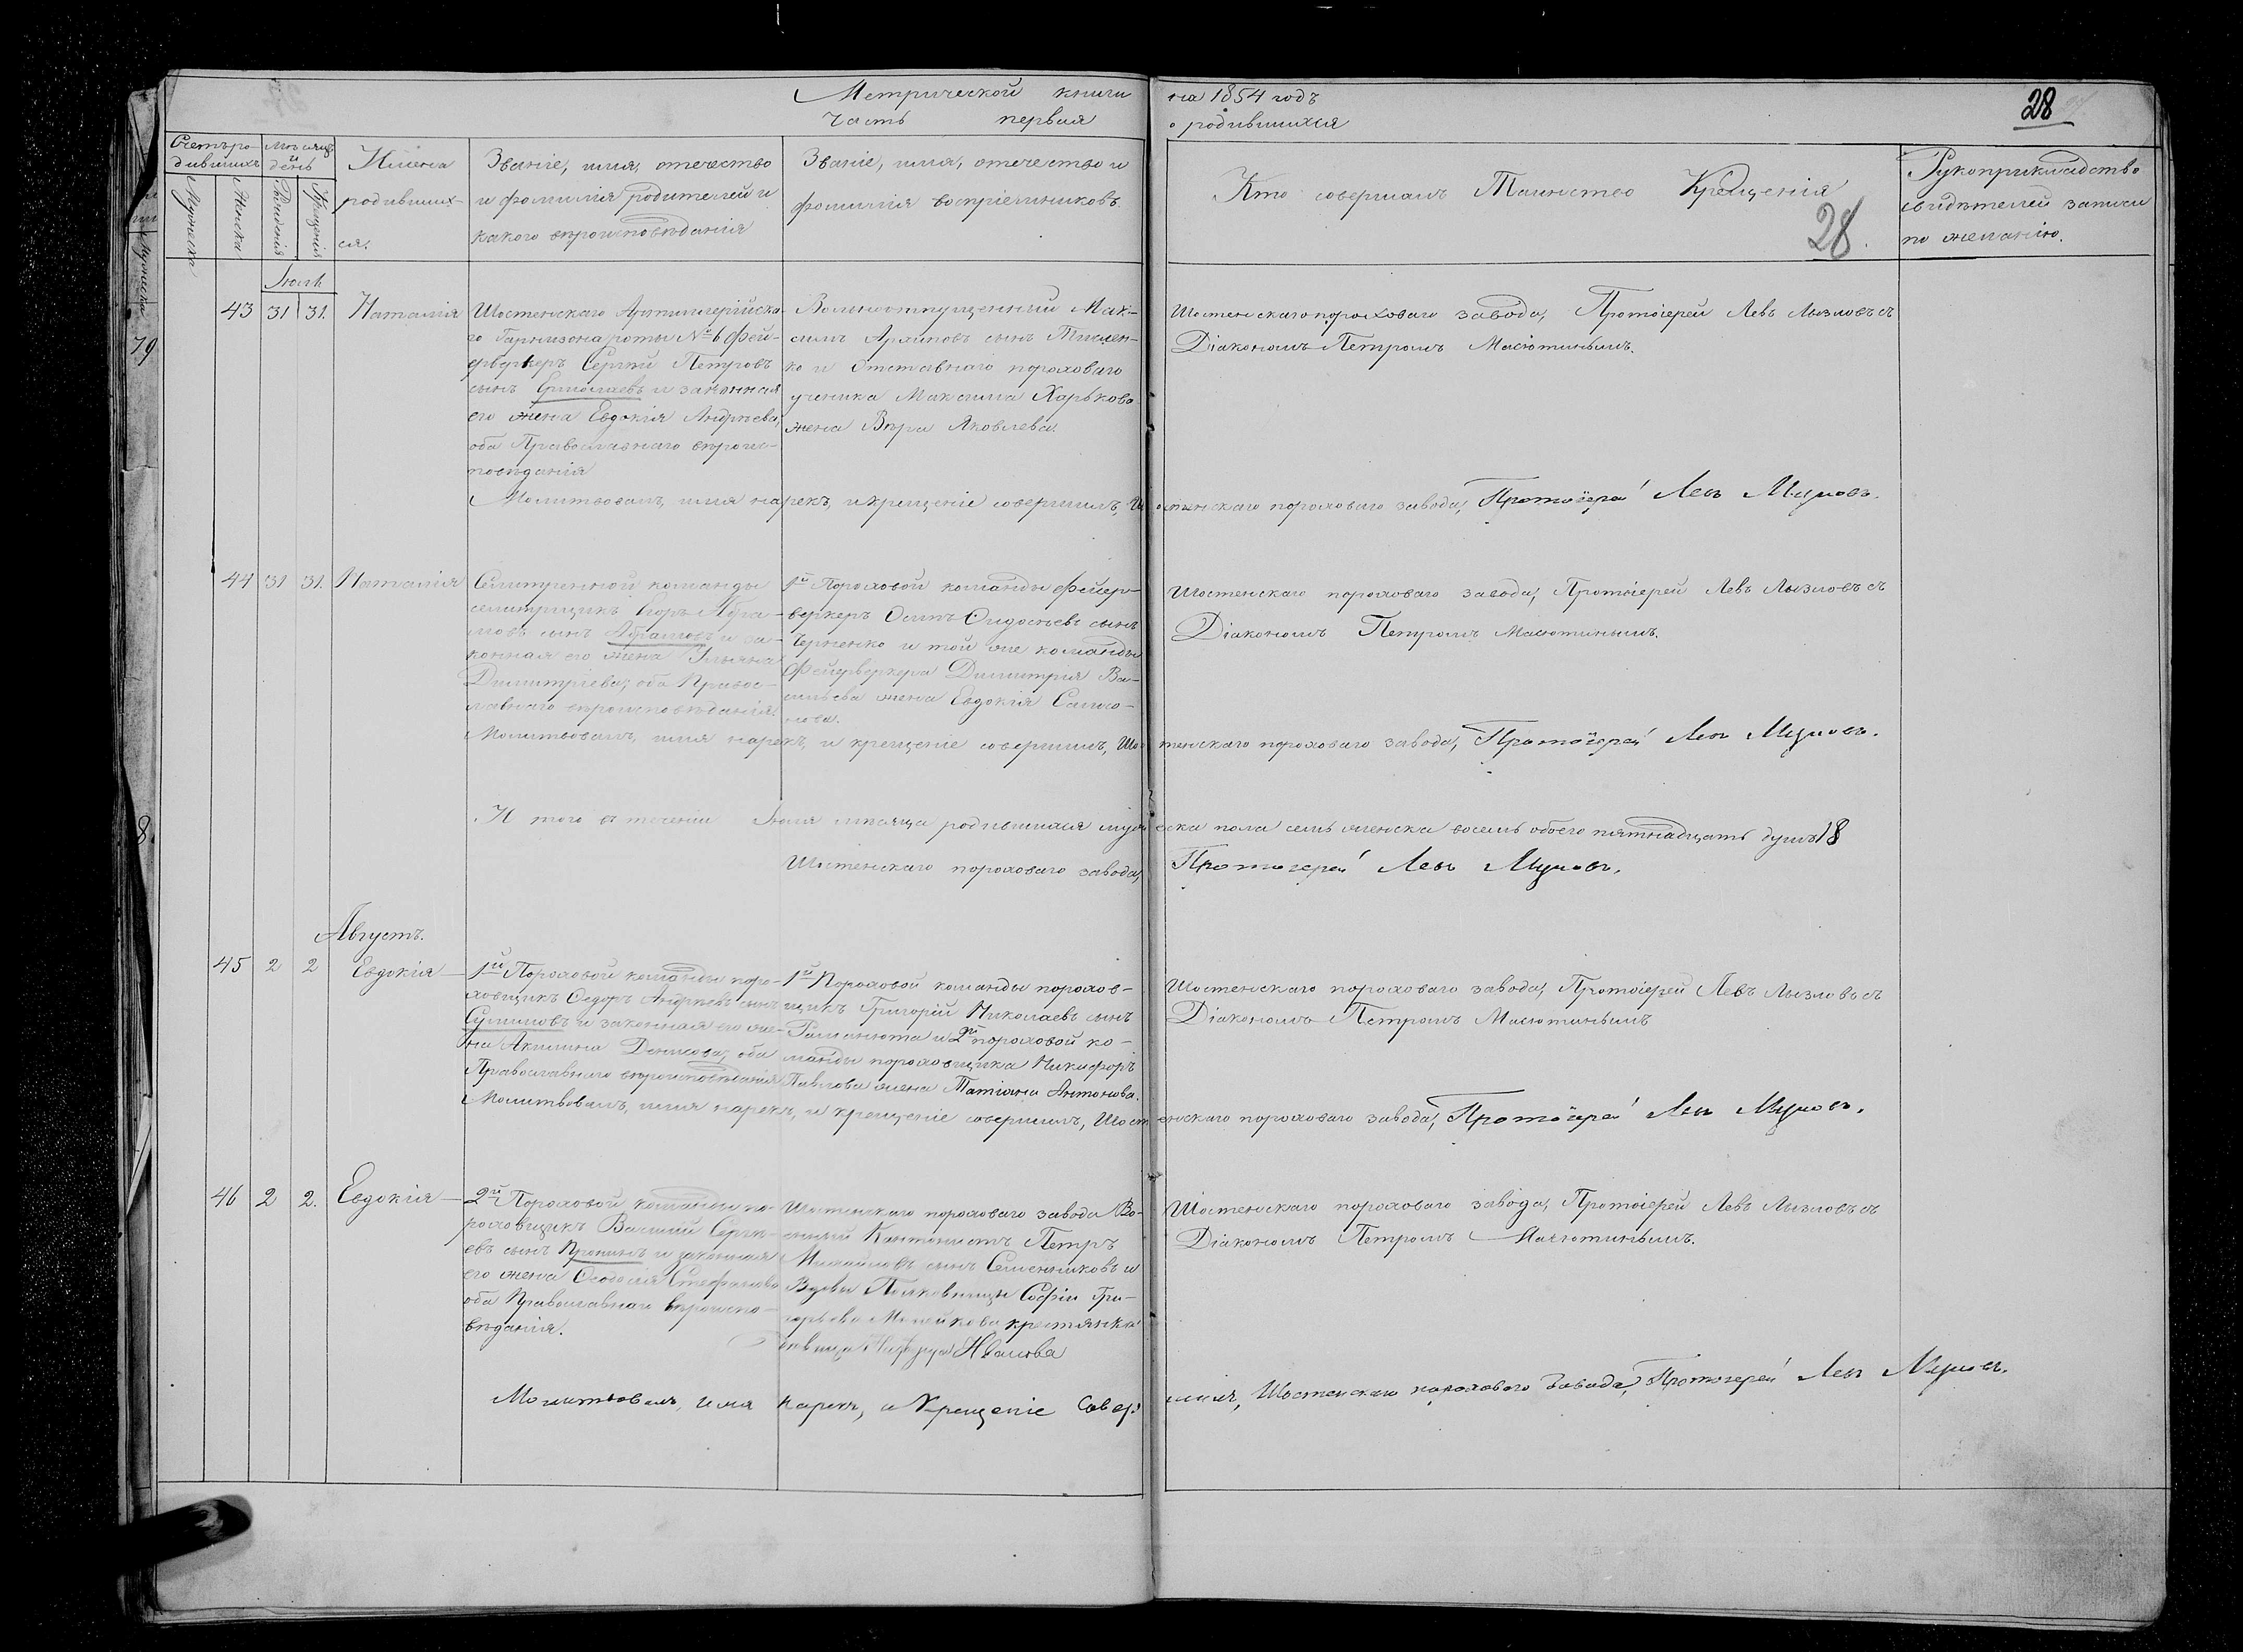 Метрической книги на 1854 годъ
28
Часть первая о родившихся
Счетъ ро-
дившихъ
Мужеска
Женска
Мѣсяцъ
и
день
Рожденія
Крещенія
Имена
родивших-
ся.
Званіе, имя, отечество
и фамилія родителей и
какого вѣроисповѣданія
Званіе, имя, отечество и
фамилія воспріемниковъ.
Кто совершалъ Таинство Крещенія
28.
Рукоприкладство
свидѣтелей записи
по желанію.
Іюль
43 31 31. Наталія
Шостенскаго Артиллерійска-
го Гарнизона роты № 6 Фей-
ерверкеръ Сергѣй Петровъ
сынъ и законная
его жена Евдокія Андрѣева,
оба Православнаго вѣроис-
повѣданія
Вольноотпущенный Мак-
симъ Архиповъ сынъ
ко и Отставнаго пороховаго
ученика Максима Харькова
жена Вѣра Яковлева.
Шостенскаго пороховаго завода, Протоіерей Левъ Лызловъ съ
Діакономъ Петромъ Масютинымъ.
Молитвовалъ, имя нарекъ, и крещеніе совершилъ, Шостенскаго пороховаго завода, Протоіерей Левъ Лызловъ.
44 31 31. Наталія
Селитренной команды
селитрщикъ Егоръ Абра-
мовъ сынъ Абрамовъ и за-
конная его жена Ульяна
Димитріева; оба Правос-
лавнаго вѣроисповѣданія.
1й Пороховой команды фейер-
веркеръ Осипъ Ѳидосѣевъ сынъ
Черненко и той же команды
Фейерверкера Димитрія Ва-
сильева жена Евдокія Самсо-
нова.
Шостенскаго пороховаго завода, Протоіерей Левъ Лызловъ съ
Діакономъ Петромъ Масютинымъ.
Молитвовалъ, имя нарекъ, и крещеніе совершилъ, Шостенскаго пороховаго завода, Протоіерей Левъ Лызловъ.
И того въ теченіи Іюля мѣсяца родившихся мужеска пола семь женска восемь обоего пятнадцать душъ 18
Шостенскаго пороховаго завода, Протоіерей Левъ Лызловъ.
Августъ.
45 2 2 Евдокія
1й Пороховой команды поро-
ховщикъ Ѳедоръ Андрѣевъ сынъ
и законная его же-
на Акилина Денисова; оба
Православнаго вѣроисповѣданія
1й Пороховой команды порохов-
щикъ Григорій Николаевъ сынъ
и 2й пороховой ко-
манды пороховщика Никифоръ
Павлова жена Татіана Антонова.
Шостенскаго пороховаго завода, Протоіерей Левъ Лызловъ съ
Діакономъ Петромъ Масютинымъ
Молитвовалъ, имя нарекъ, и крещеніе совершилъ, Шостенскаго пороховаго завода, Протоіерей Левъ Лызловъ.
46 2 2. Евдокія
2й Пороховой команды по-
роховщикъ Василій Сергѣ-
евъ сынъ Пронинъ и законная
его жена Ѳеодосія Стефанова
оба Православнаго вѣроиспо-
вѣданія.
Шостенскаго пороховаго завода Во-
енный Кантонистъ Петръ
Михайловъ сынъ Семенниковъ и
Вдовы Полковницы Софіи Гри-
горьева крестьянка
дѣвица Иванова
Шостенскаго пороховаго завода, Протоіерей Левъ Лызловъ съ
Діакономъ Петромъ Масютинымъ.
Молитвовалъ, имя нарекъ, и Крещеніе Совершилъ, Шостенскаго пороховаго завода, Протоіерей Левъ Лызловъ.